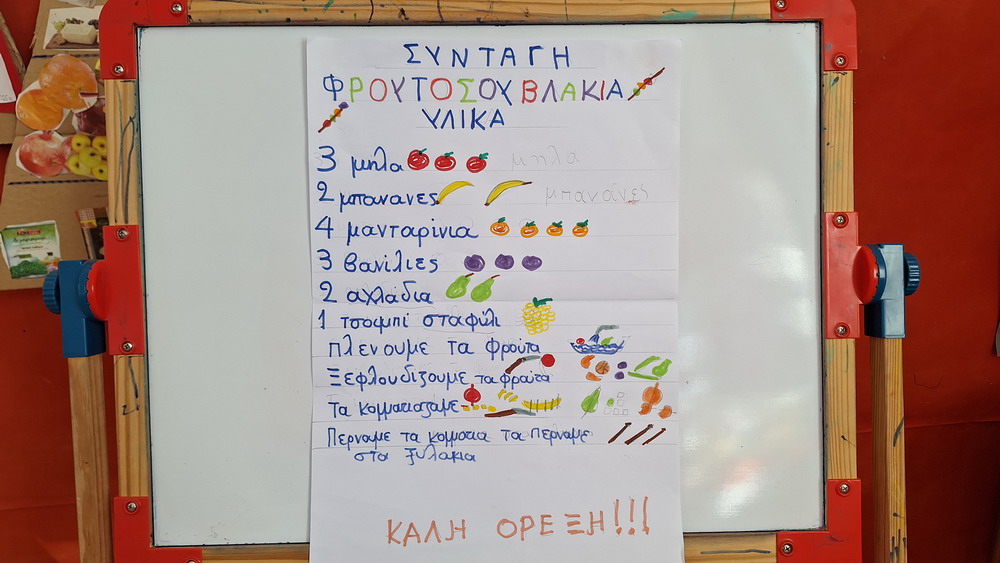 ΣΥΝΤΑΓΗ
ΦΡΟΥΤΟΣΟΥΒΛΑΚΙΑ
ΥΛΙΚΑ
3 μηλα μηλα
2 μπανανες μπανάνες
4 μανταρίνια
3 βανίλιες
2 αχλάδια
1 τσαμπί σταφύλι
πλενουμε τα φρούτα
Ξεφλουδιζουμε τα φρούτα
Τα κομματιαζαμε
Περναμε τα κομματια τα περναμε
στα ξυλακια
ΚΑΛΗ ΟΡΕΞΗ!!!